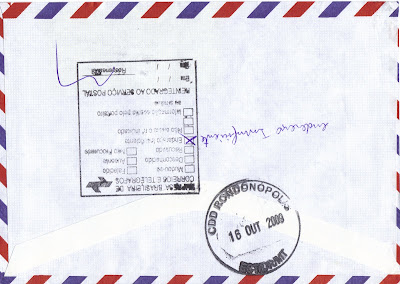 BRASILEIRA DE
CORREIOS E TELÉGRAFOS
Mudou-se
Falecido
Desconhecido
Ausente
Recusado
Não Procurado
Endereço Insuficiente
Não existe o nº indicado
Informação escrita pelo porteiro
ou síndico
REINTEGRADO AO SERVIÇO POSTAL
Em / /
Em / /
endereço Insuficiente
CDD RONDONOPOLIS
16 OUT 2009